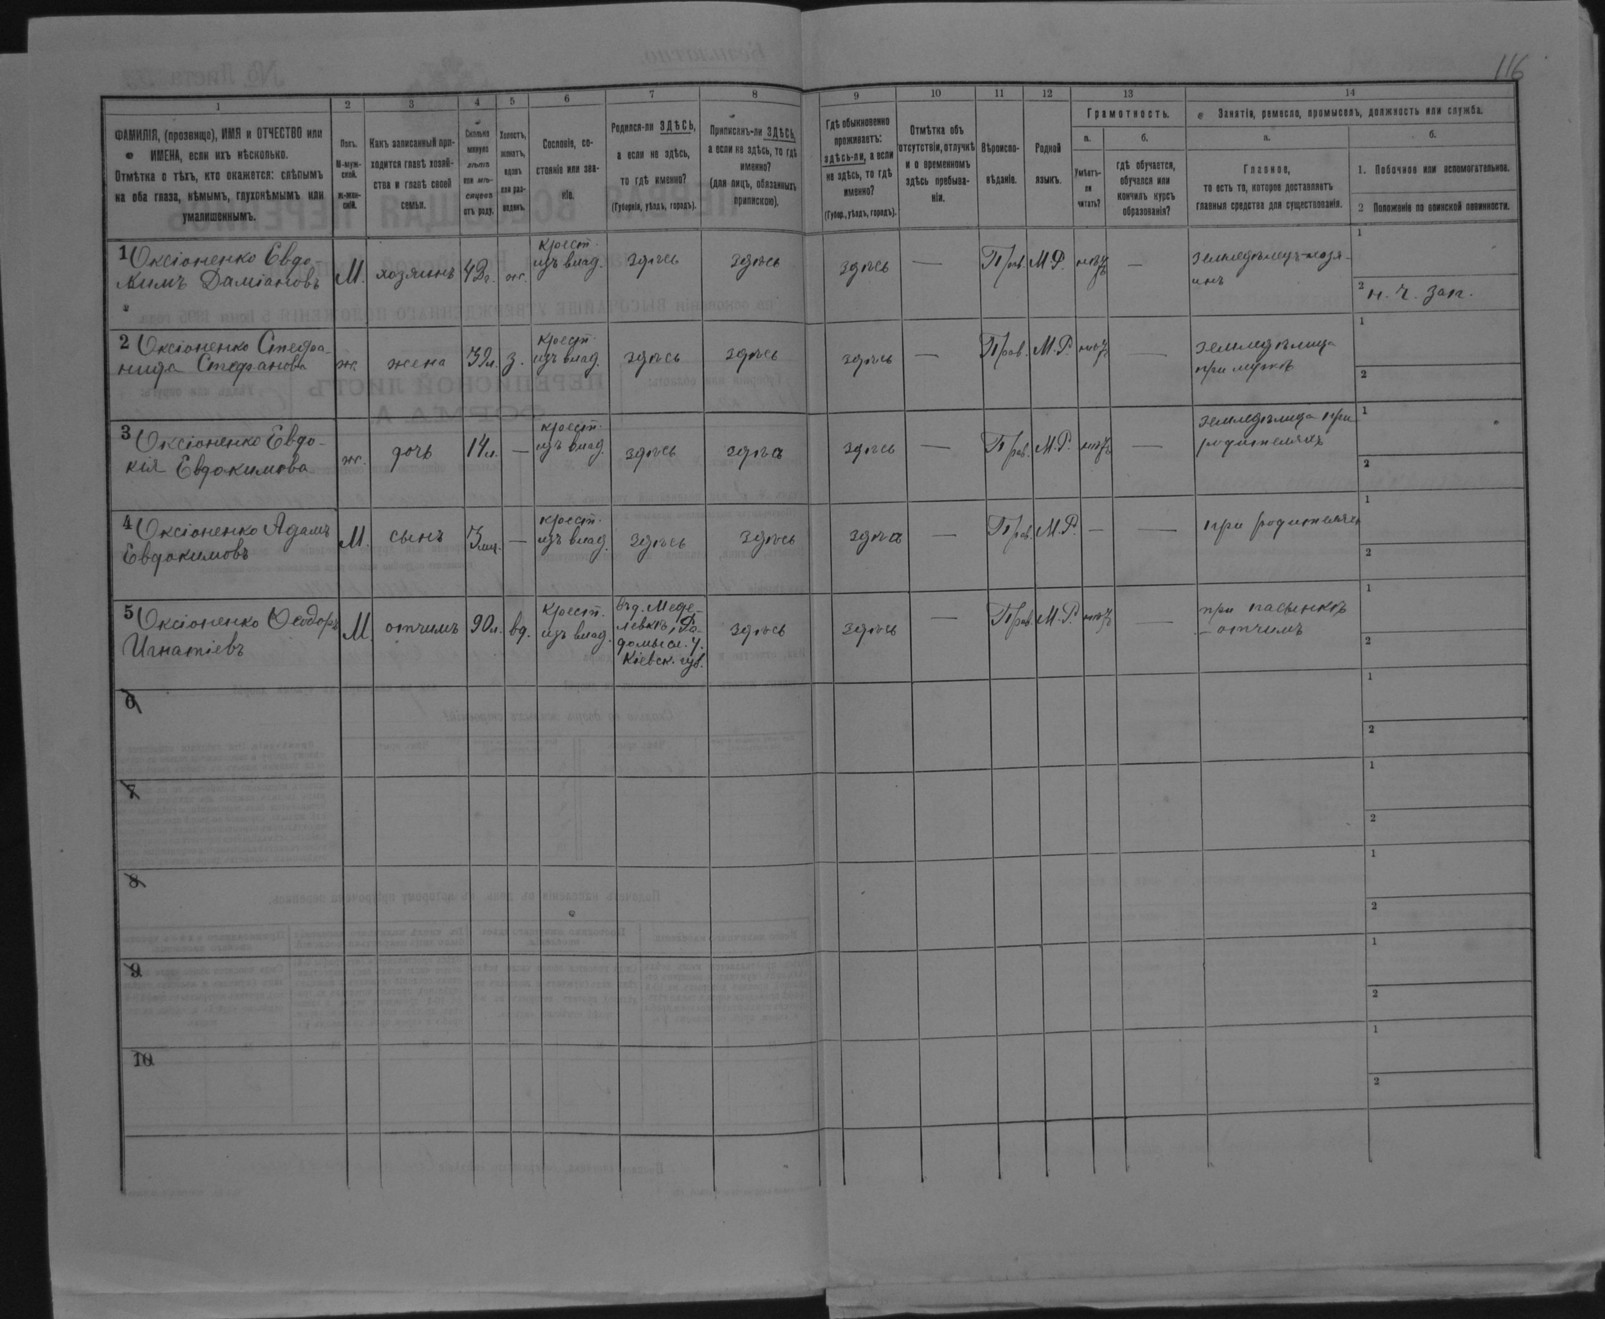 116
1
2
3
4
5
6
7
8
9
10
11
12
13
14
ФАМИЛІЯ, (прозвище), ИМЯ и ОТЧЕСТВО или
ИМЕНА, если ихъ нѣсколько.
Отмѣтка о тѣхъ, кто окажется: слѣпымъ
на оба глаза, нѣмымъ, глухонѣмымъ или
умалишеннымъ.
Полъ.
М-муж-
ской.
ж-жен-
скій.
Какъ записанный при-
ходится главѣ хозяй-
ства и главѣ своей
семьи.
Сколько
минуло
лѣтъ
или мѣ-
сяцевъ
отъ роду.
Холостъ,
женатъ,
вдовъ
или раз-
веденъ.
Сословіе, со-
стояніе или зва-
ніе.
Родился-ли ЗДѢСЬ,
а если не здѣсь,
то гдѣ именно?
(Губернія, уѣздъ, городъ).
Приписанъ-ли ЗДѢСЬ,
а если не здѣсь, то гдѣ
именно?
(для лицъ, обязанныхъ
припискою).
Гдѣ обыкновенно
проживаетъ:
здѣсь-ли, а если
не здѣсь, то гдѣ
именно?
(Губер., уѣздъ, городъ).
Отмѣтка объ
отсутствіи, отлучкѣ
и о временномъ
здѣсь пребыва-
ніи.
Вѣроиспо-
вѣданіе.
Родной
языкъ.
Грамотность.
а.
Умѣетъ-
ли
читать?
б.
гдѣ обучается,
обучался или
кончилъ курсъ
образованія?
Занятіе, ремесло, промыселъ, должность или служба.
а.
Главное,
то есть то, которое доставляетъ
главныя средства для существованія.
б.
1. Побочное или вспомогательное.
2 Положеніе по воинской повинности.
1 Оксіоненко Евдо-
кимъ Даміановъ
М.
хозяинъ
42 г.
ж.
крест.
изъ влад.
здѣсь
здѣсь
здѣсь
—
Прав.
М.Р.
нѣтъ
—
земледѣлецъ-хозя-
инъ
1
2 н. ч. зап.
2 Оксіоненко Стефа-
нида Стефанова
ж.
жена
32 л.
з.
крест.
изъ влад.
здѣсь
здѣсь
здѣсь
—
Прав.
М.Р.
нѣтъ
—
земледѣлица
при мужѣ
1
2
3 Оксіоненко Евдо-
кія Евдокимова
ж.
дочь
14 л.
—
крест.
изъ влад.
здѣсь
здѣсь
здѣсь
—
Прав.
М.Р.
нѣтъ
—
земледѣлица при
родителяхъ
1
2
4 Оксіоненко Адамъ
Евдокимовъ
М.
сынъ
3 мц.
—
крест.
изъ влад.
здѣсь
здѣсь
здѣсь
—
Прав.
М.Р.
—
—
при родителяхъ
1
2
5 Оксіоненко Ѳеодоръ
Игнатіевъ
М.
отчимъ
90 л.
вд.
крест.
изъ влад.
въ д. Меде-
левкѣ, Ра-
домысл. у.
Кіевск. губ.
здѣсь
здѣсь
—
Прав.
М.Р.
нѣтъ
—
при пасынкѣ
отчимъ
1
2
6
1
2
7
1
2
8
1
2
9
1
2
10
1
2